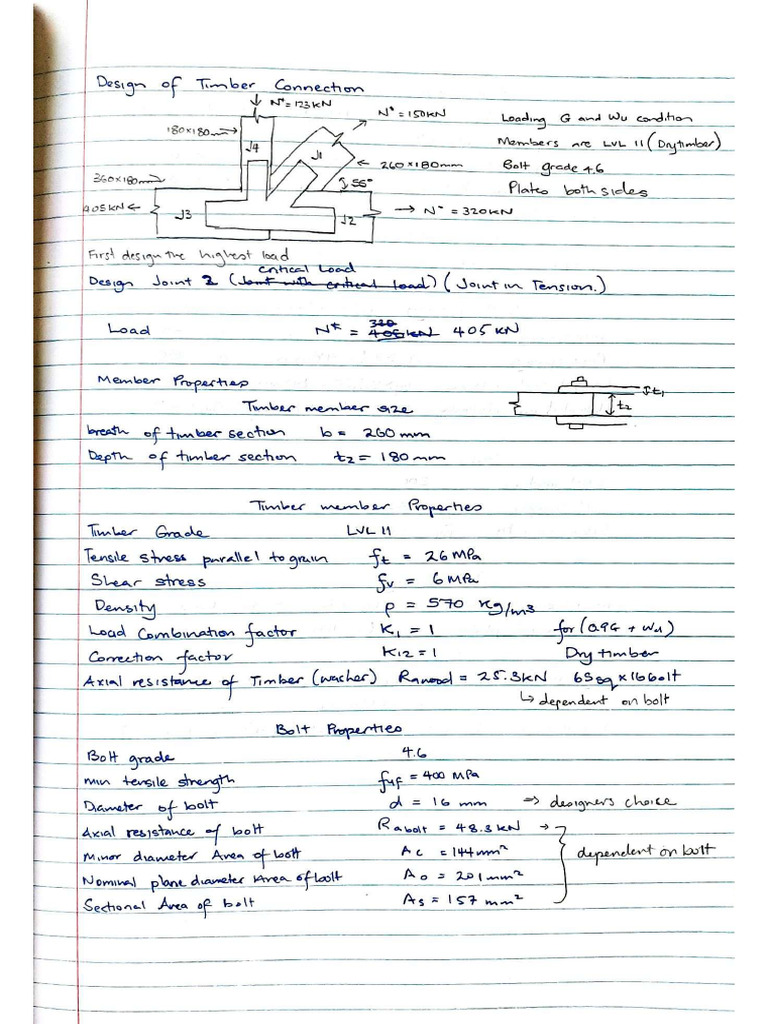 Design of Timber Connection
N* = 123KN
N* = 150KN
Loading G and Wu condition
180×180mm
J4
J1
Members are LVL 11 (Dry timber)
260×180mm
Bolt grade 4.6
360×180mm
55°
Plates both sides
405KN
J3
J2
N* = 320KN
First design the highest load
critical Load
Design Joint 2 (Joint with critical load) (Joint in Tension.)
320
Load N* = 405KN 405KN
Member Properties
t1
Timber member size
t2
breath of timber section b = 260mm
Depth of timber section t2 = 180 mm
Timber member Properties
Timber Grade LVL 11
Tensile stress parallel to grain ft = 26 MPa
Shear stress fv = 6 MPa
Density ρ = 570 kg/m3
Load Combination factor K1 = 1 for (0.9G + Wu)
Correction factor K12 = 1 Dry timber
Axial resistance of Timber (washer) Rawood = 25.3KN 65sq×16bolt
↳ dependent on bolt
Bolt Properties
Bolt grade 4.6
min tensile strength fuf = 400 MPa
Diameter of bolt d = 16 mm => designers choice
Axial resistance of bolt Rabolt = 48.3KN →
Minor diameter Area of bolt Ac = 144mm²
dependent on bolt
Nominal plane diameter Area of bolt Ao = 201mm²
Sectional Area of bolt As = 157 mm²